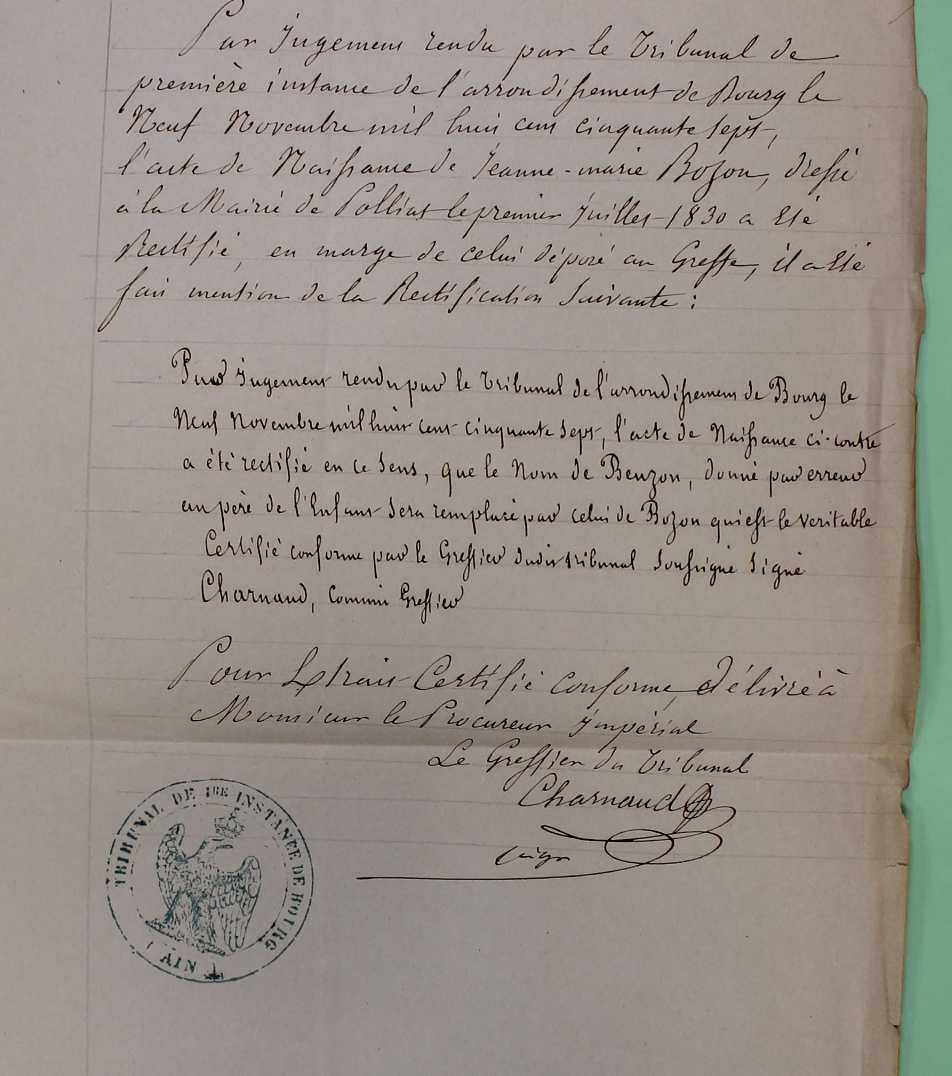 Par Jugement rendu par le Tribunal de
première instance de l'arrondissement de Bourg le
Neuf Novembre mil huit cent cinquante sept,
l'acte de Naissance de Jeanne-marie Bozon, dressé
à la Mairie de Polliat le premier Juillet 1830 a Eté
Rectifié, en marge de celui déposé au Greffe, il a Eté
fait mention de la Rectification Suivante :
Par Jugement rendu par le Tribunal de l'arrondissement de Bourg le
Neuf Novembre mil huit cent cinquante sept, l'acte de Naissance ci-contre
a été rectifié en ce sens, que le Nom de Beuzon, donné par erreur
au père de l'Enfant sera remplacé par celui de Bozon qui est le veritable
Certifié conforme par le Greffier dudit tribunal Soussigné Signé
Charnaud, Commis Greffier
Pour Extrait Certifié conforme, délivré à
Monsieur le Procureur Impérial
Le Greffier du Tribunal
Charnaud
TRIBUNAL DE 1RE INSTANCE DE BOURG
(AIN)